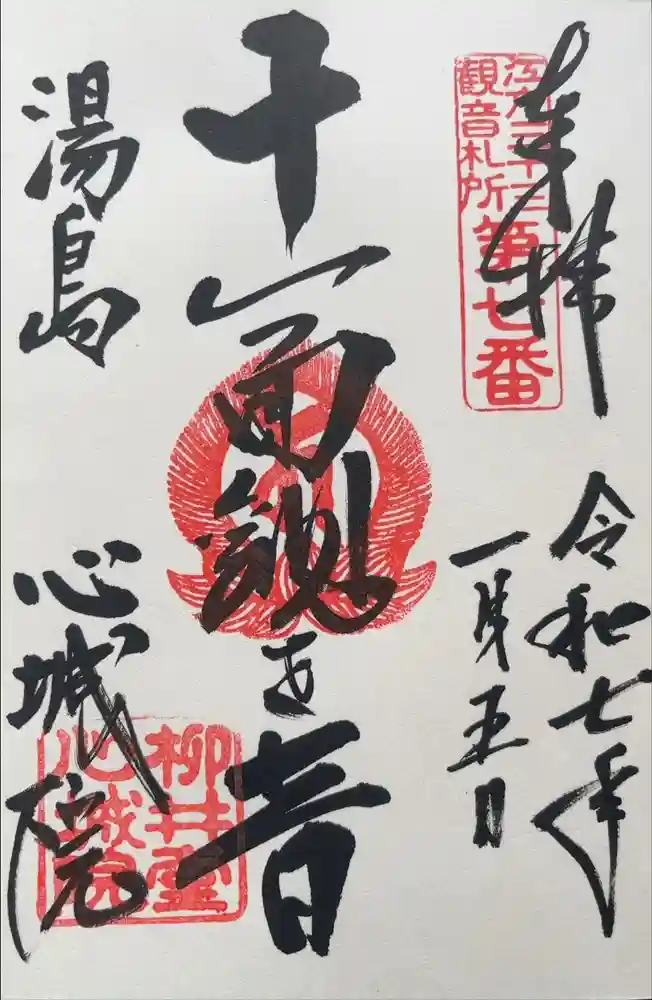 奉拝
江戸三十三
観音札所
第七番
令和七年
一月五日
十一面観世音
湯島
心城院
柳井堂
心城院